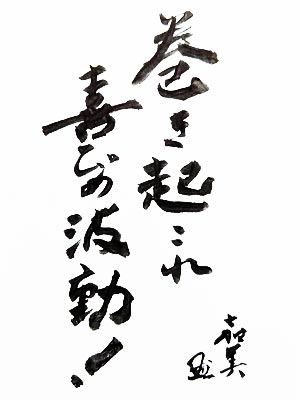 巻き起これ
喜びの波動！
嘉美